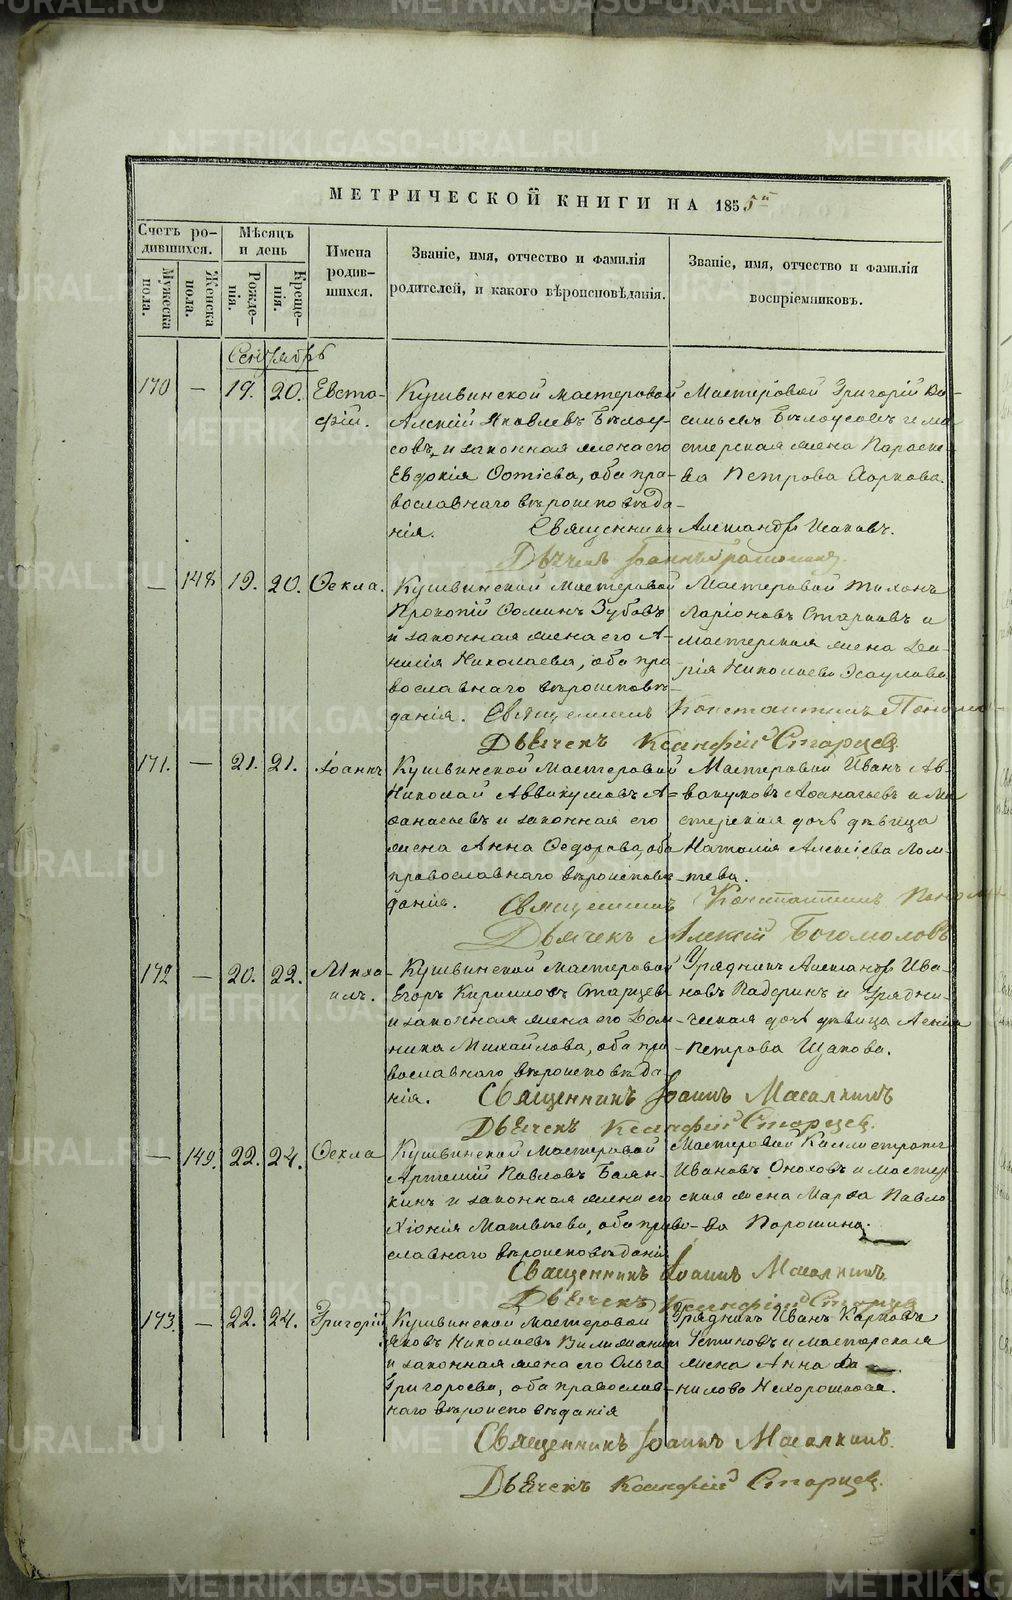 МЕТРИЧЕСКОЙ КНИГИ НА 1855й
Счетъ родившихся.
Мужеска пола.
Женска пола.
Мѣсяцъ и день
Рожденія.
Крещенія.
Имена родившихся.
Званіе, имя, отчество и фамилія родителей, и какого вѣроисповѣданія.
Званіе, имя, отчество и фамилія воспріемниковъ.
Сентябрь
170 — 19. 20. Евстафій.
Кушвинской мастеровой
Алексій Яковлевъ Бѣлоусовъ, и законная жена его
Евдокія Фотіева, оба православнаго вѣроисповѣданія.
Мастеровой Григорій Васильевъ Бѣлоусовъ и мастерская жена Параскева Петрова
Священникъ Александръ Исаковъ.
Дьячекъ Іоаннъ
— 148 19. 20. Ѳекла.
Кушвинской Мастеровой
Прокопій Ѳоминъ Зубовъ
и законная жена его Анисія Николаева, оба православнаго вѣроисповѣданія.
Мастеровой Тихонъ
Ларіоновъ Старковъ и
мастерская жена Дарія Николаева
Священникъ Константинъ
Дьячекъ Ксанфій Старцев.
171. — 21. 21. Іоаннъ
Кушвинской Мастеровой
Николай Аввакумовъ Аѳанасьевъ и законная его
жена Анна Ѳедорова, оба
православнаго вѣроисповѣданія.
Мастеровой Иванъ Аввакумовъ Аѳанасьевъ и мастерская дочь дѣвица
Наталія Алексіева
Священникъ Константинъ
Дьячекъ Алексій Богомоловъ
172 — 20. 22. Михаилъ.
Кушвинской Мастеровой
Егоръ Кирилловъ Старцевъ
и законная жена его Домника Михайлова, оба православнаго вѣроисповѣданія.
Урядникъ Александръ Ивановъ Падеринъ и Урядническая дочь дѣвица
Петрова Щапова.
Священникъ Іоаннъ Масалкинъ
Дьячекъ Ксанфій Старцев.
— 149. 22. 24. Ѳекла
Кушвинской Мастеровой
Артемій Павловъ Баянкинъ и законная жена его
Хіонія Матвѣева, оба православнаго вѣроисповѣданія
Мастеровой Каллистратъ
Ивановъ Оноховъ и мастерская жена Марѳа Павлова Порошина.
Священникъ Іоаннъ Масалкинъ
Дьячекъ Ксанфій Старцев
173. — 22. 24. Григорій
Кушвинской Мастеровой
Яковъ Николаевъ
и законная жена его Ольга
Григорьева, оба православнаго вѣроисповѣданія
Урядникъ Иванъ Карповъ
Устиновъ и мастерская
жена Анна Данилова Нехорошкова.
Священникъ Іоаннъ Масалкинъ.
Дьячекъ Ксанфій Старцев.
METRIKI.GASO-URAL.RU